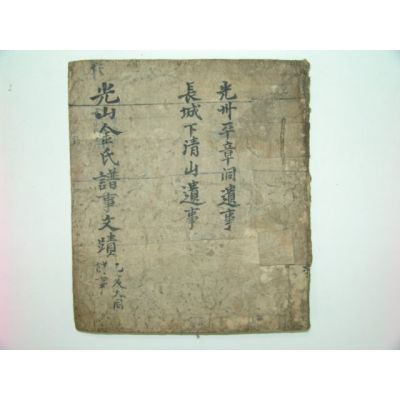 光州平章洞遺事
長城下淸山遺事
光山金氏譜事文蹟
乙亥大同
譜草